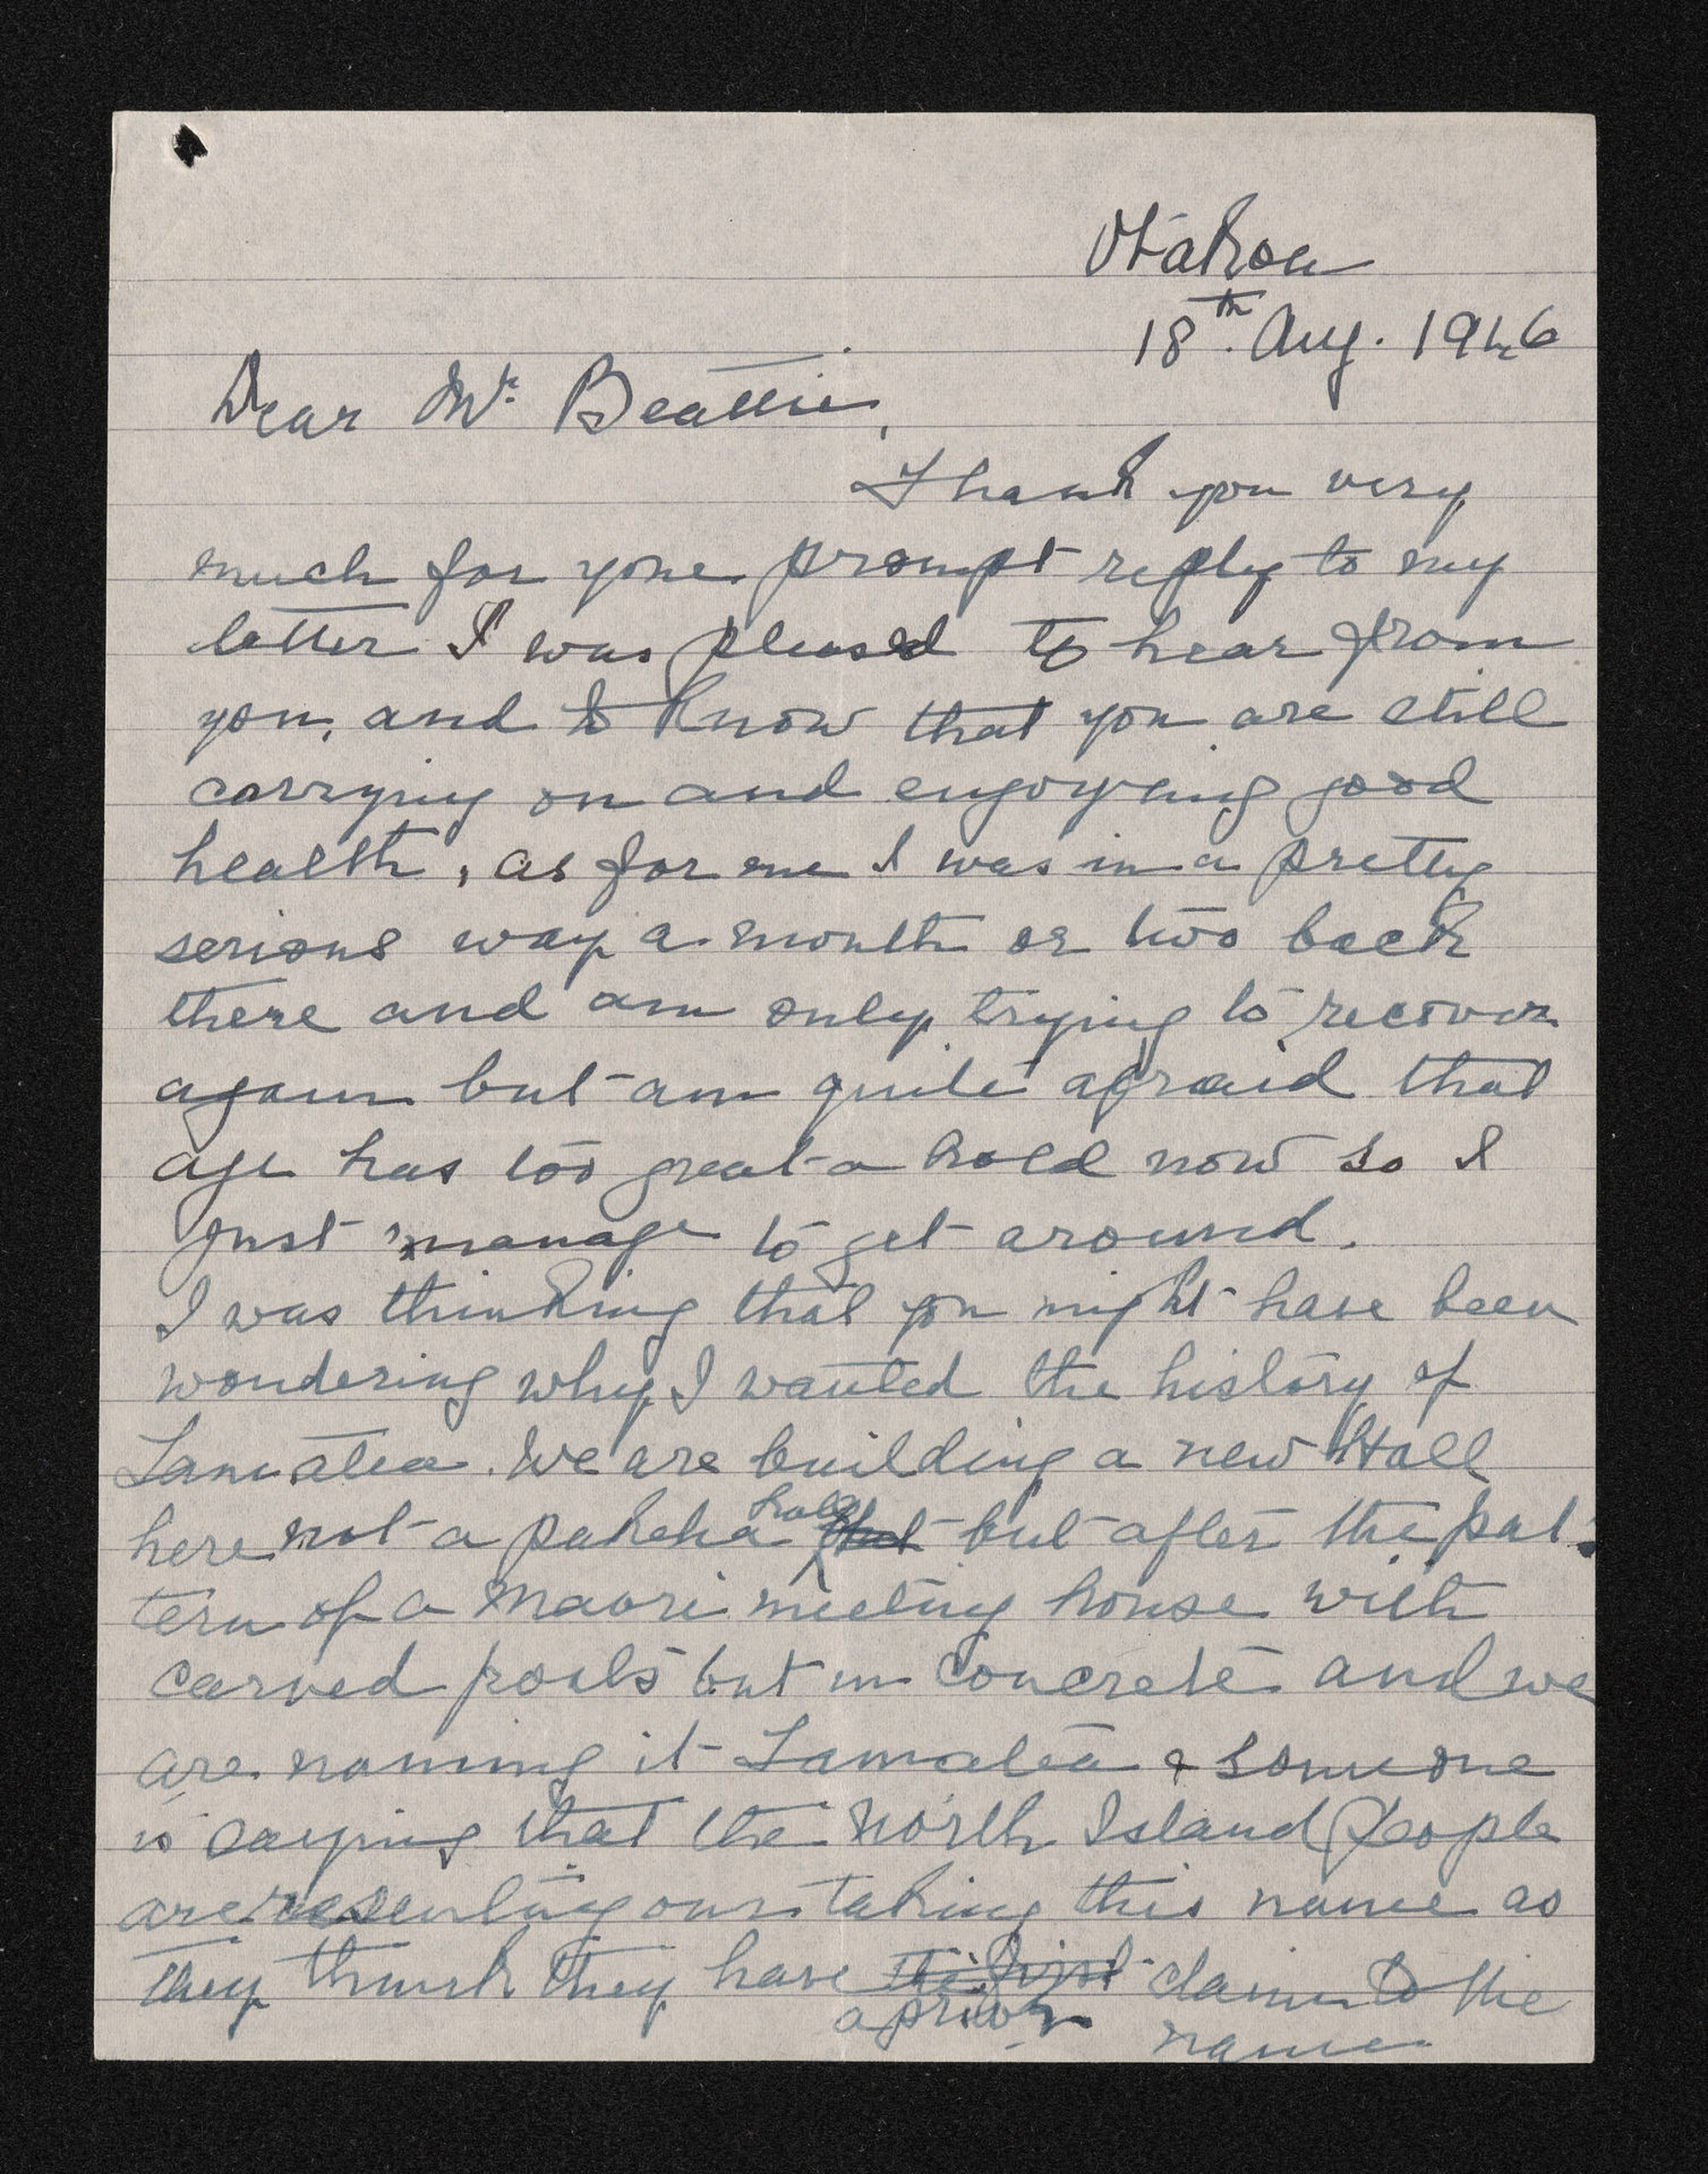 Otakou
18th. Aug. 1946
Dear Mr. Beattie,
Thank you very
much for your prompt reply to my
letter I was pleased to hear from
you, and to know that you are still
carrying on and engoying good
health, as for me I was in a pretty
serious way a month or two back
there and am only trying to recover
again but am quite afraid that
age has too great a hold now so I
just manage to get around.
I was thinking that you might have been
wondering why I wanted the history of
Tamatea. We are building a new Hall
here not a pakeha hall but after the pat-
tern of a Maori meeting house with
carved posts but in concrete and we
are naming it Tamatea & someone
is saying that the North Island people
are resenting our taking this name as
they think they have the first claim to the
a prior name